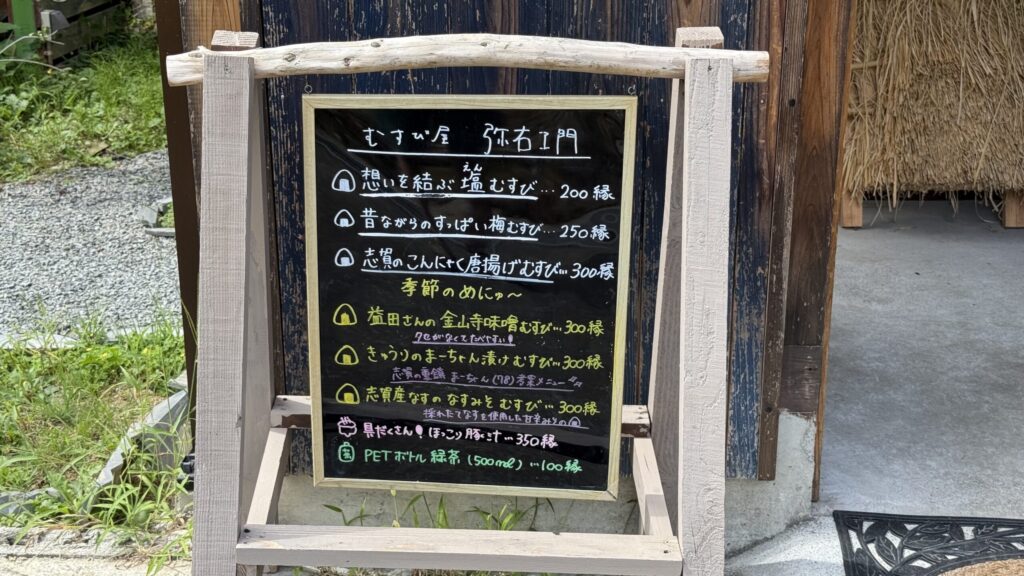 むすび屋 弥右エ門
えん
想いを結ぶ 塩むすび…200縁
昔ながらのすっぱい梅むすび…250縁
志賀のこんにゃく唐揚げむすび…300縁
季節のめにゅ〜
益田さんの金山寺味噌むすび…300縁
クセがなくてたべやすい!
きゅうりのまーちゃん漬けむすび…300縁
志賀の重鎮 まーちゃん(78)考案メニュー
志賀産なすの なすみそ むすび…300縁
採れたてなすを使用した甘辛みその
具だくさん!ほっこり豚汁…350縁
PETボトル 緑茶(500ml)…100縁